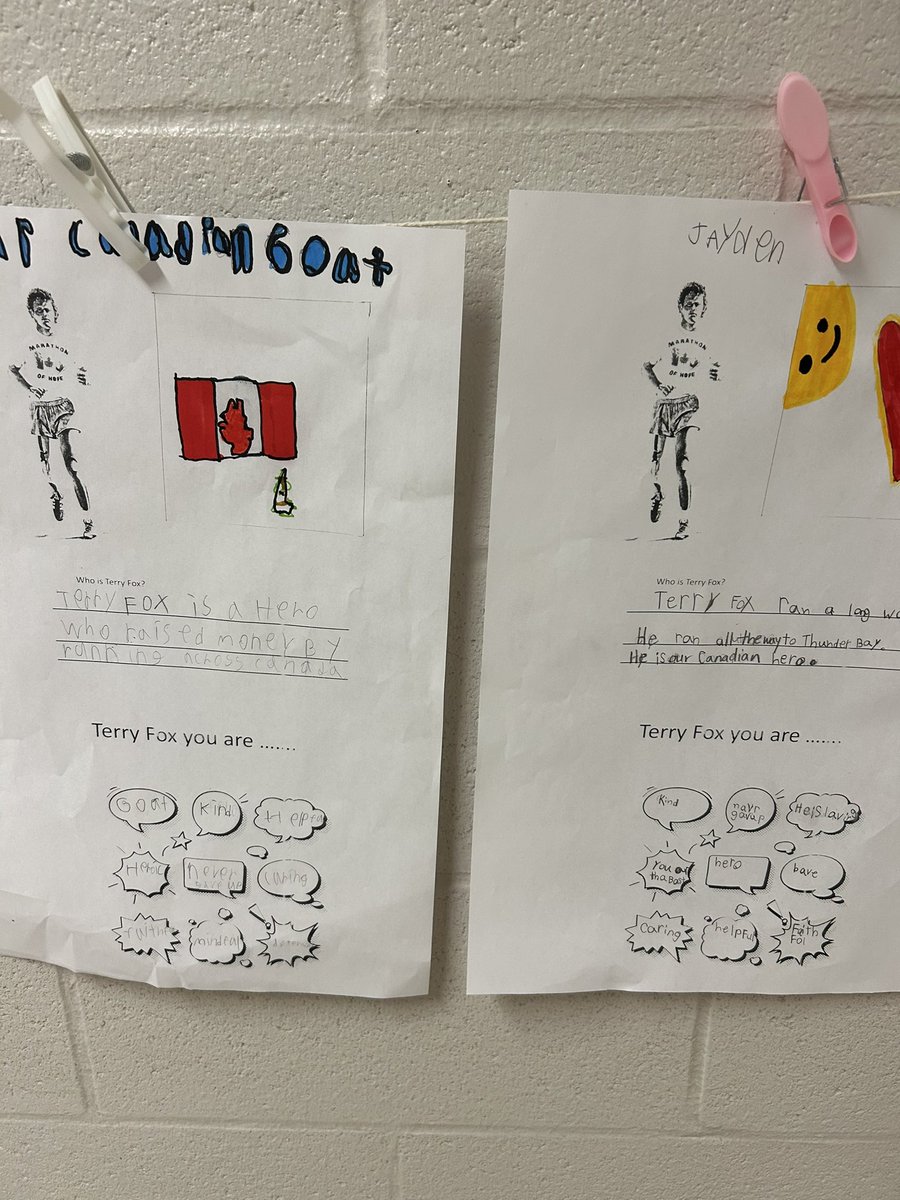 Canadian Goat
MARATHON
OF HOPE
Who is Terry Fox?
Terry FOX is a Hero
who raised money By
running across canada
Terry Fox you are .......
Goat
Kind
Helpful
Heroic
never
caring
mindful
JAYDen
MARATHON
OF HOPE
Who is Terry Fox?
Terry Fox ran a log
He ran all the way to Thunder Bay.
He is our Canadian hero.
Terry Fox you are .......
Kind
navr
gavap
You ar
tha Bast
hero
bave
Caring
helpFul
Faith
Fol